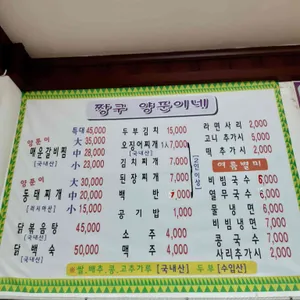 짱구 양푼이네
양푼이
매운갈비찜
[국내산]
특대 45,000
大 35,000
中 28,000
小 23,000
양푼이
동태찌개
[러시아산]
大 30,000
中 20,000
小 15,000
닭볶음탕 45,000
[국내산]
닭백숙 50,000
[국내산]
두부김치 15,000
오징어찌개 1人7,000
[국내산]
김치찌개 7,000
된장찌개 7,000
백반 7,000
공기밥 1,000
소주 4,000
맥주 4,000
[2인이상]
라면사리 2,000
고니추가시 5,000
두부추가시 2,000
여름별미
비빔국수 6,000
열무국수 6,000
물냉면 6,000
비빔냉면 6,000
콩국수 7,000
사리추가시 2,000
※쌀,배추,콩,고추가루 [국내산] 두부 [수입산]